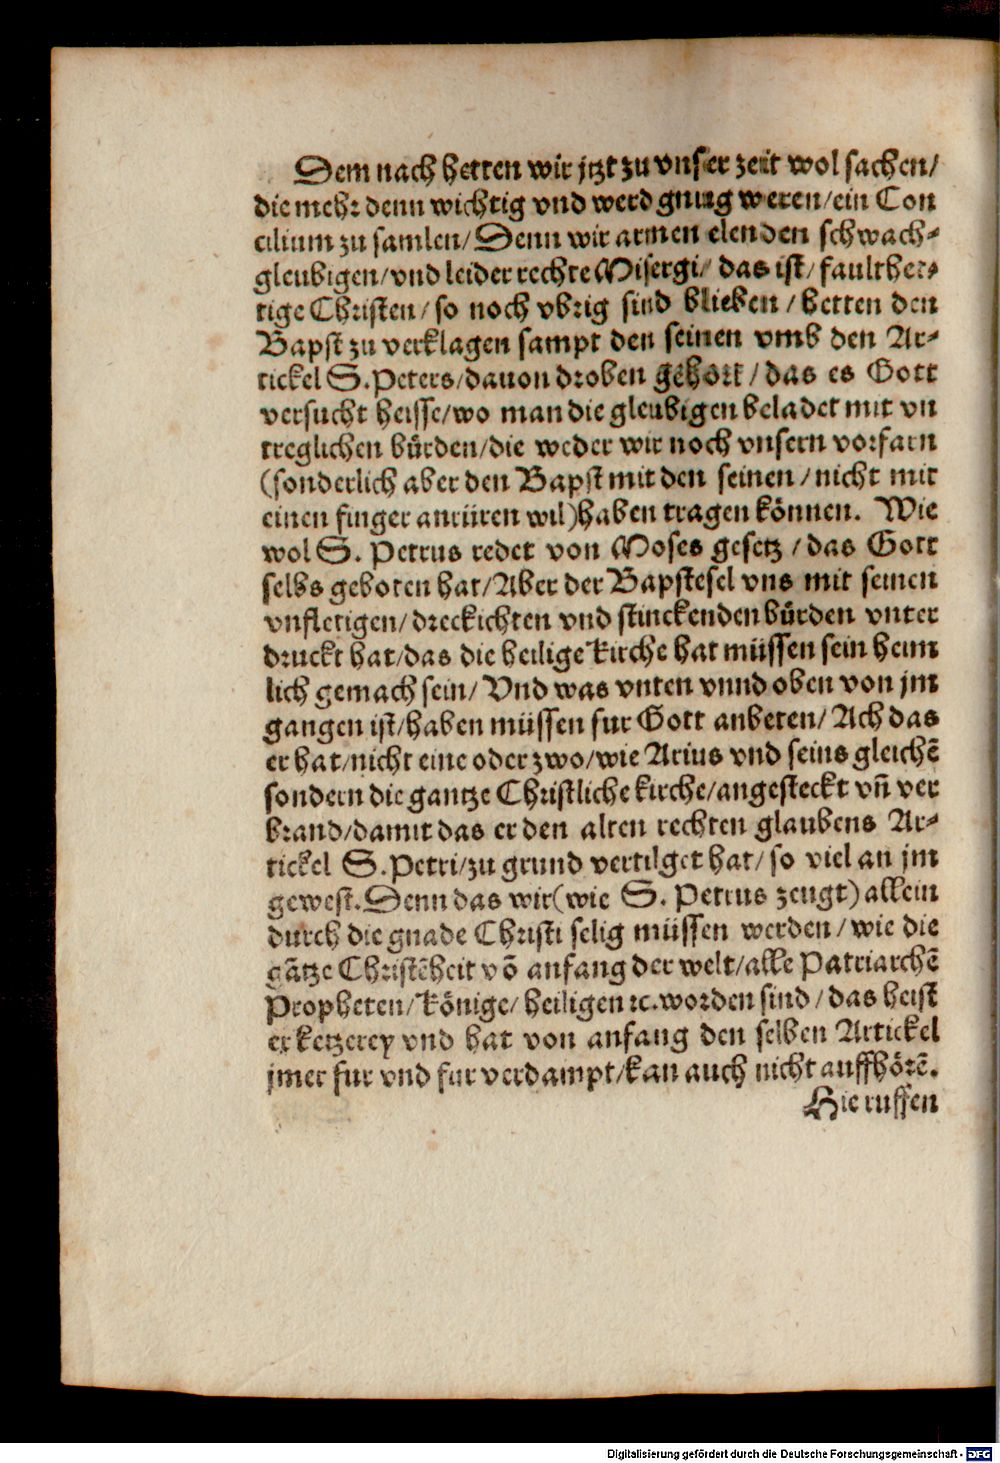 Dem nach hetten wir jtzt zu vnser zeit wol sachen/
die mehr denn wichtig vnd werd gnug weren/ein Con
cilium zu samlen/Denn wir armen elenden schwach-
gleubigen/vnd leider rechte Misergi/ das ist/ faulther-
tige Christen/ so noch vbrig sind blieben / hetten den
Bapst zu verklagen sampt den seinen vmb den Ar-
tickel S. Peters/dauon droben gehört / das es Gott
versucht heisse/wo man die gleubigen beladet mit vn
treglichen bürden/die weder wir noch vnsern vorfarn
(sonderlich aber den Bapst mit den seinen / nicht mit
einen finger anrüren wil) haben tragen können. Wie
wol S. Petrus redet von Moses gesetz / das Gott
selbs geboten hat/Aber der Bapstesel vns mit seinen
vnfletigen/ dreckichten vnd stinckenden bürden vnter
druckt hat/das die heilige kirche hat müssen sein heim
lich gemach sein/ Vnd was vnten vnnd oben von jm
gangen ist/haben müssen fur Gott anbeten/ Ach das
er hat/nicht eine oder zwo/wie Arius vnd seins gleichē
sondern die gantze Christliche kirche/angesteckt vñ ver
brand/damit das er den alten rechten glaubens Ar-
tickel S. Petri/zu grund vertilget hat/ so viel an jm
gewest. Denn das wir (wie S. Petrus zeugt) allein
durch die gnade Christi selig müssen werden / wie die
gātze Christēheit võ anfang der welt/alle Patriarchē
Propheten/ Könige/ heiligen ꝛc. worden sind / das heist
er ketzerey vnd hat von anfang den selben Artickel
jmer fur vnd fur verdampt/kan auch nicht auffhörē.
Hie ruffen
Digitalisierung gefördert durch die Deutsche Forschungsgemeinschaft - DFG